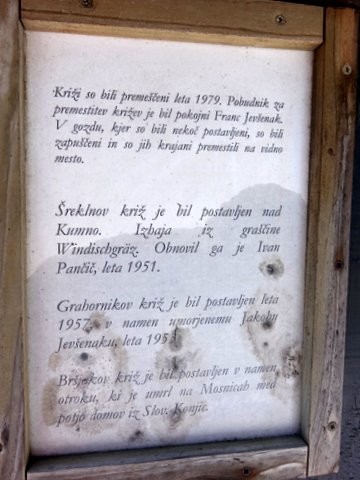 Križi so bili premeščeni leta 1979. Pobudnik za
premestitev križev je bil pokojni Franc Jevšenak.
V gozdu, kjer so bili nekoč postavljeni, so bili
zapuščeni in so jih krajani premestili na vidno
mesto.
Šreklnov križ je bil postavljen nad
Kumno. Izhaja iz graščine
Windischgräz. Obnovil ga je Ivan
Pančič, leta 1951.
Grahornikov križ je bil postavljen leta
1957, v namen umorjenemu Jakobu
Jevšenaku, leta
križ je bil postavljen v namen
otroku, ki je umrl na Mosnicah med
potjo domov iz Slov. Konjic.